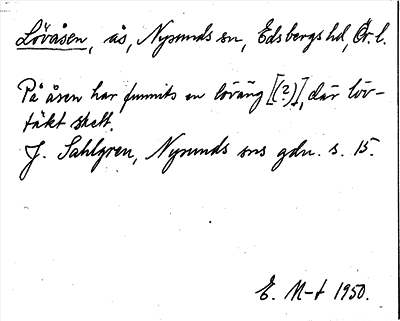 Lövåsen, ås, Nysunds sn, Edsbergs hd, Ör. l.
På åsen har funnits en löväng [(?)], där löv-
täkt skett.
J. Sahlgren, Nysunds sns gdn. s. 15.
E. M-t 1950.